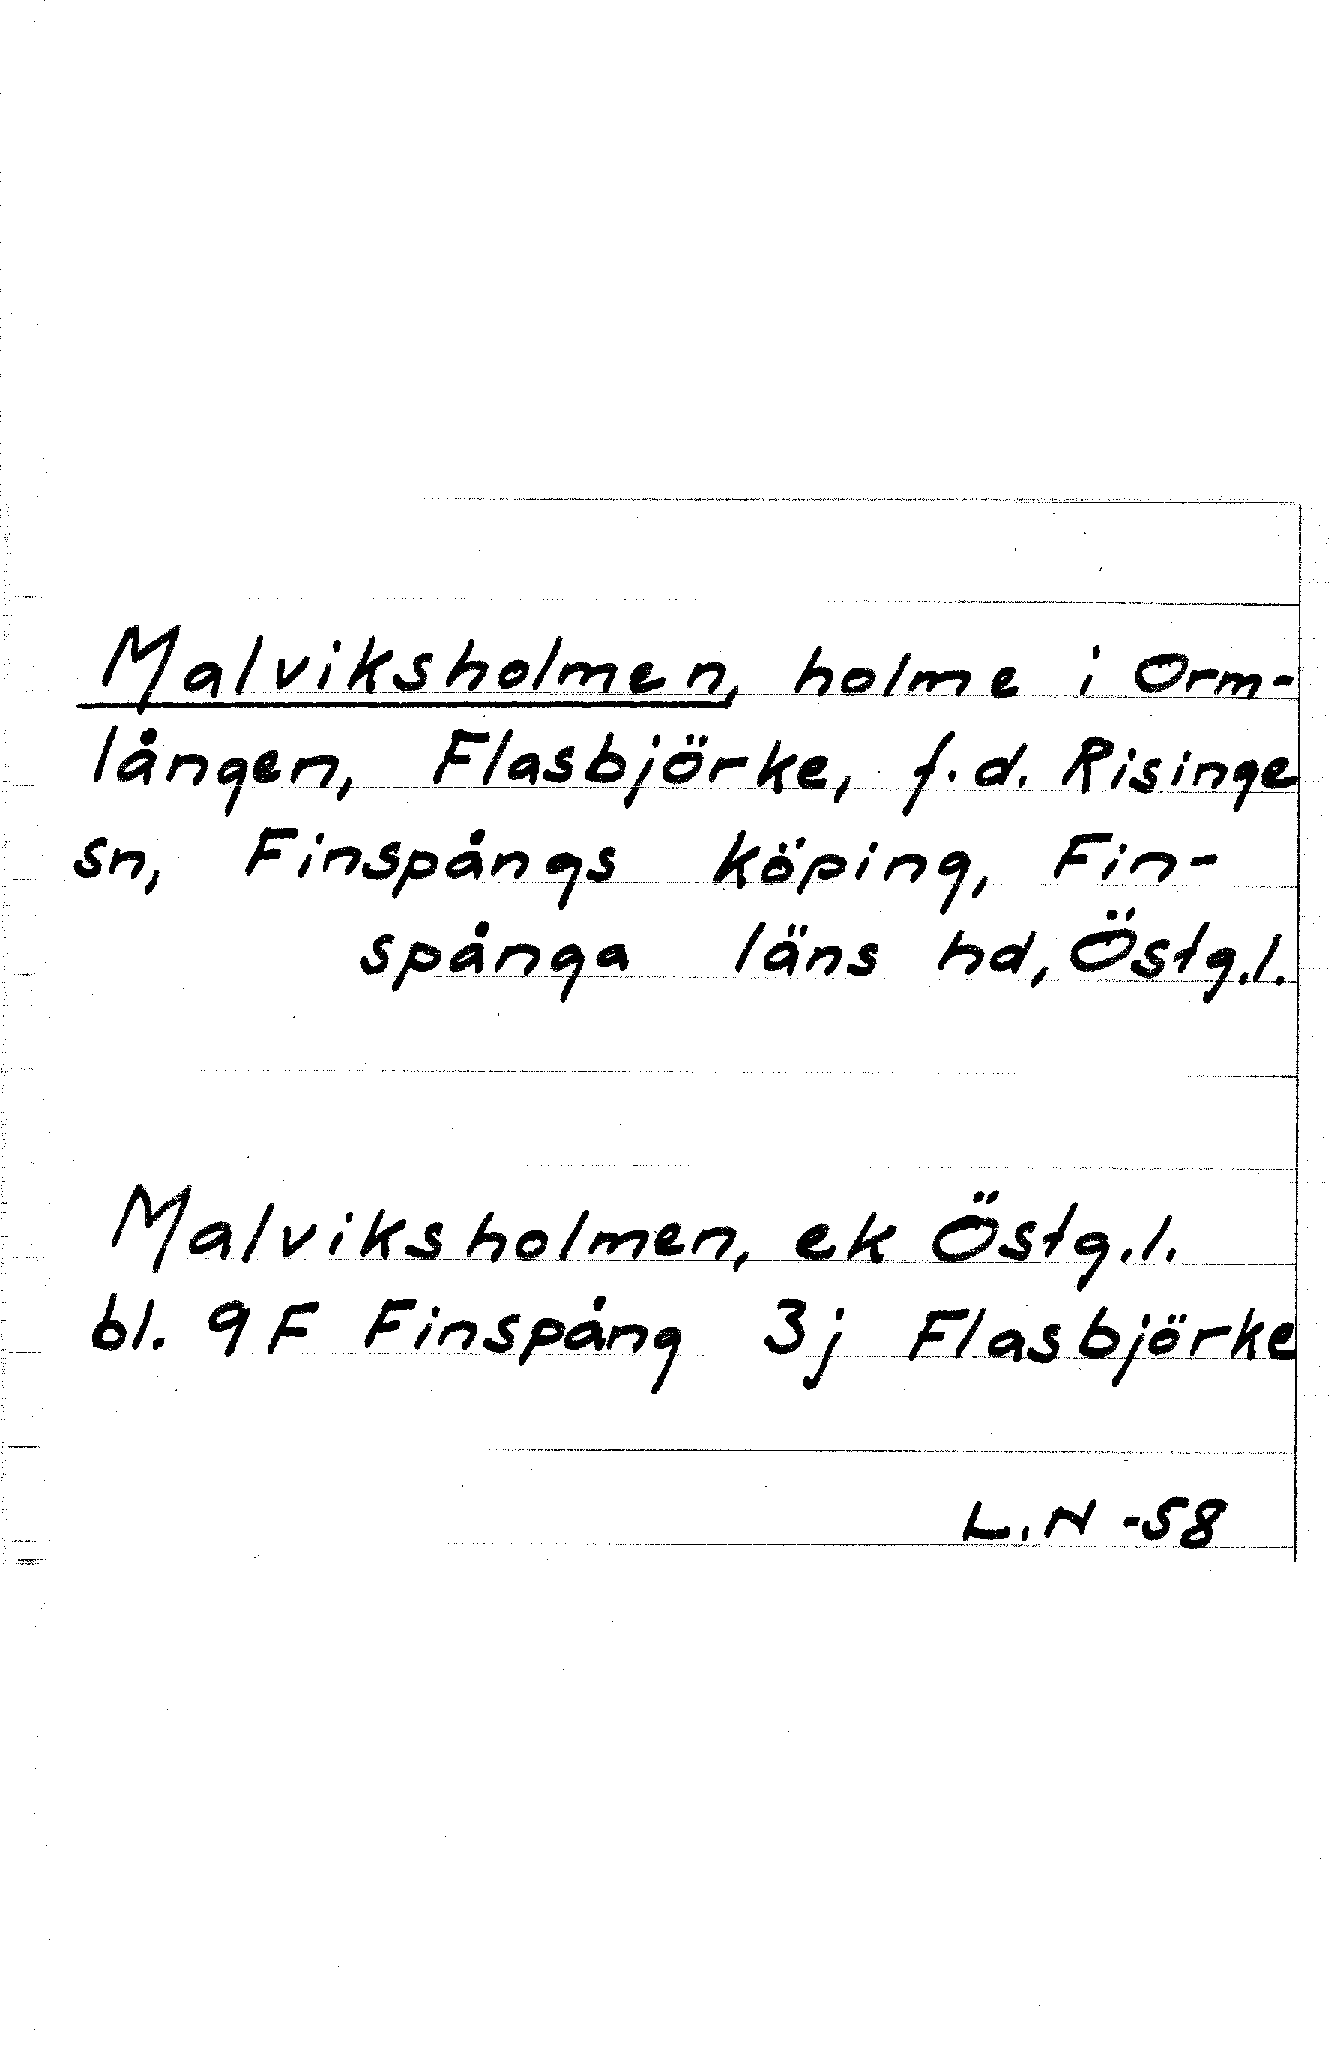 Malviksholmen, holme i Orm-
lången, Flasbjörke, f.d. Risinge
sn, Finspångs köping, Fin-
spånga läns hd, Östg.l.
Malviksholmen, ek Östg.l.
bl. 9F Finspång 3j Flasbjörke
L.N -58